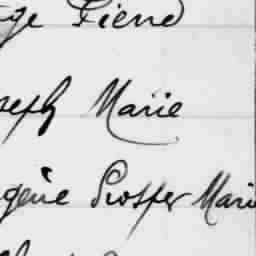 ge Pierre
seph Marie
gène Prosper Marie